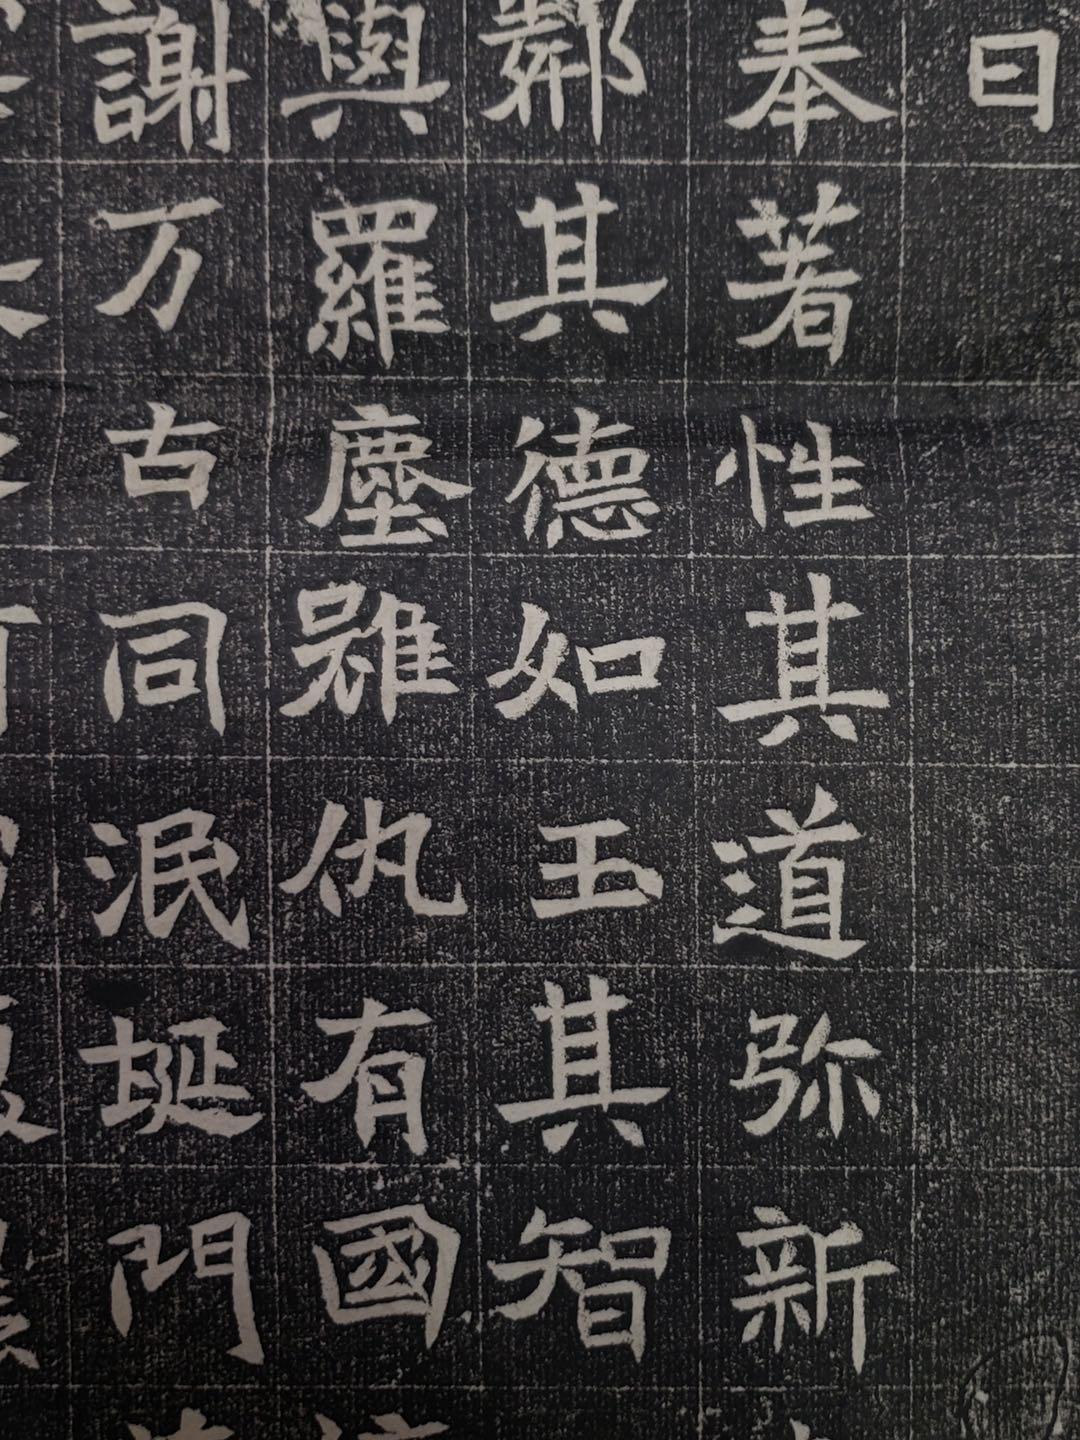 曰
奉著性其道弥新
鄰其德如玉其智
輿羅塵雖仇有國
謝万古同泯埏門